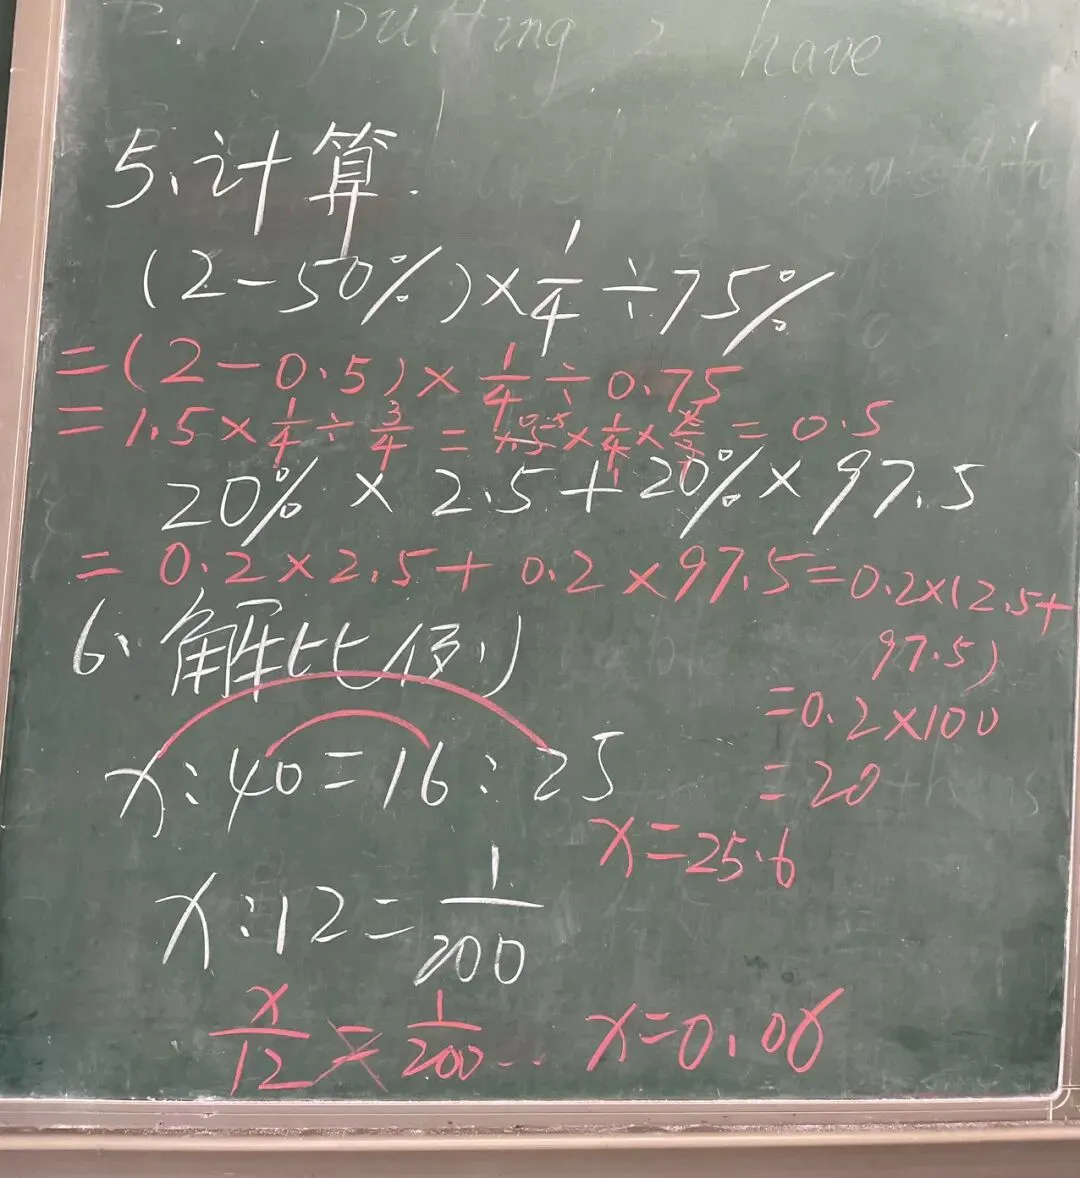 putting 2 have
5、计算.
(2-50%)×1/4÷75%
=(2-0.5)×1/4÷0.75
=1.5×1/4÷3/4= ×1/4× =0.5
20%×2.5+20%×97.5
=0.2×2.5+0.2×97.5=0.2×(2.5+
97.5)
=0.2×100
=20
6、解比例
x:40=16:25
x=25.6
x:12=1/200
x/12=1/200.. x=0.06